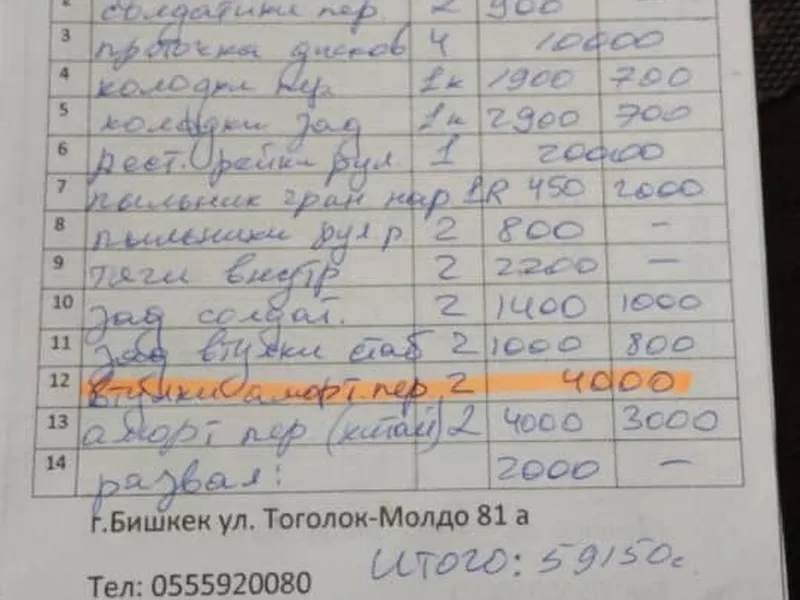 2 солдатики пер 2 900
3 проточка дисков 4 10000
4 колодки пер 1к 1900 700
5 колодки зад 1к 2900 700
6 рест. рейки рул. 1 20000
7 пыльник гран нар 1R 450 2000
8 пыльники рул р 2 800 –
9 тяги внутр 2 2200 –
10 зад солдат. 2 1400 1000
11 зад втулки стаб 2 1000 800
12 втулки аморт.пер 2 4000
13 аморт пер (китай) 2 4000 3000
14 развал: 2000 –
г.Бишкек ул. Тоголок-Молдо 81 а
Итого: 59150с
Тел: 0555920080